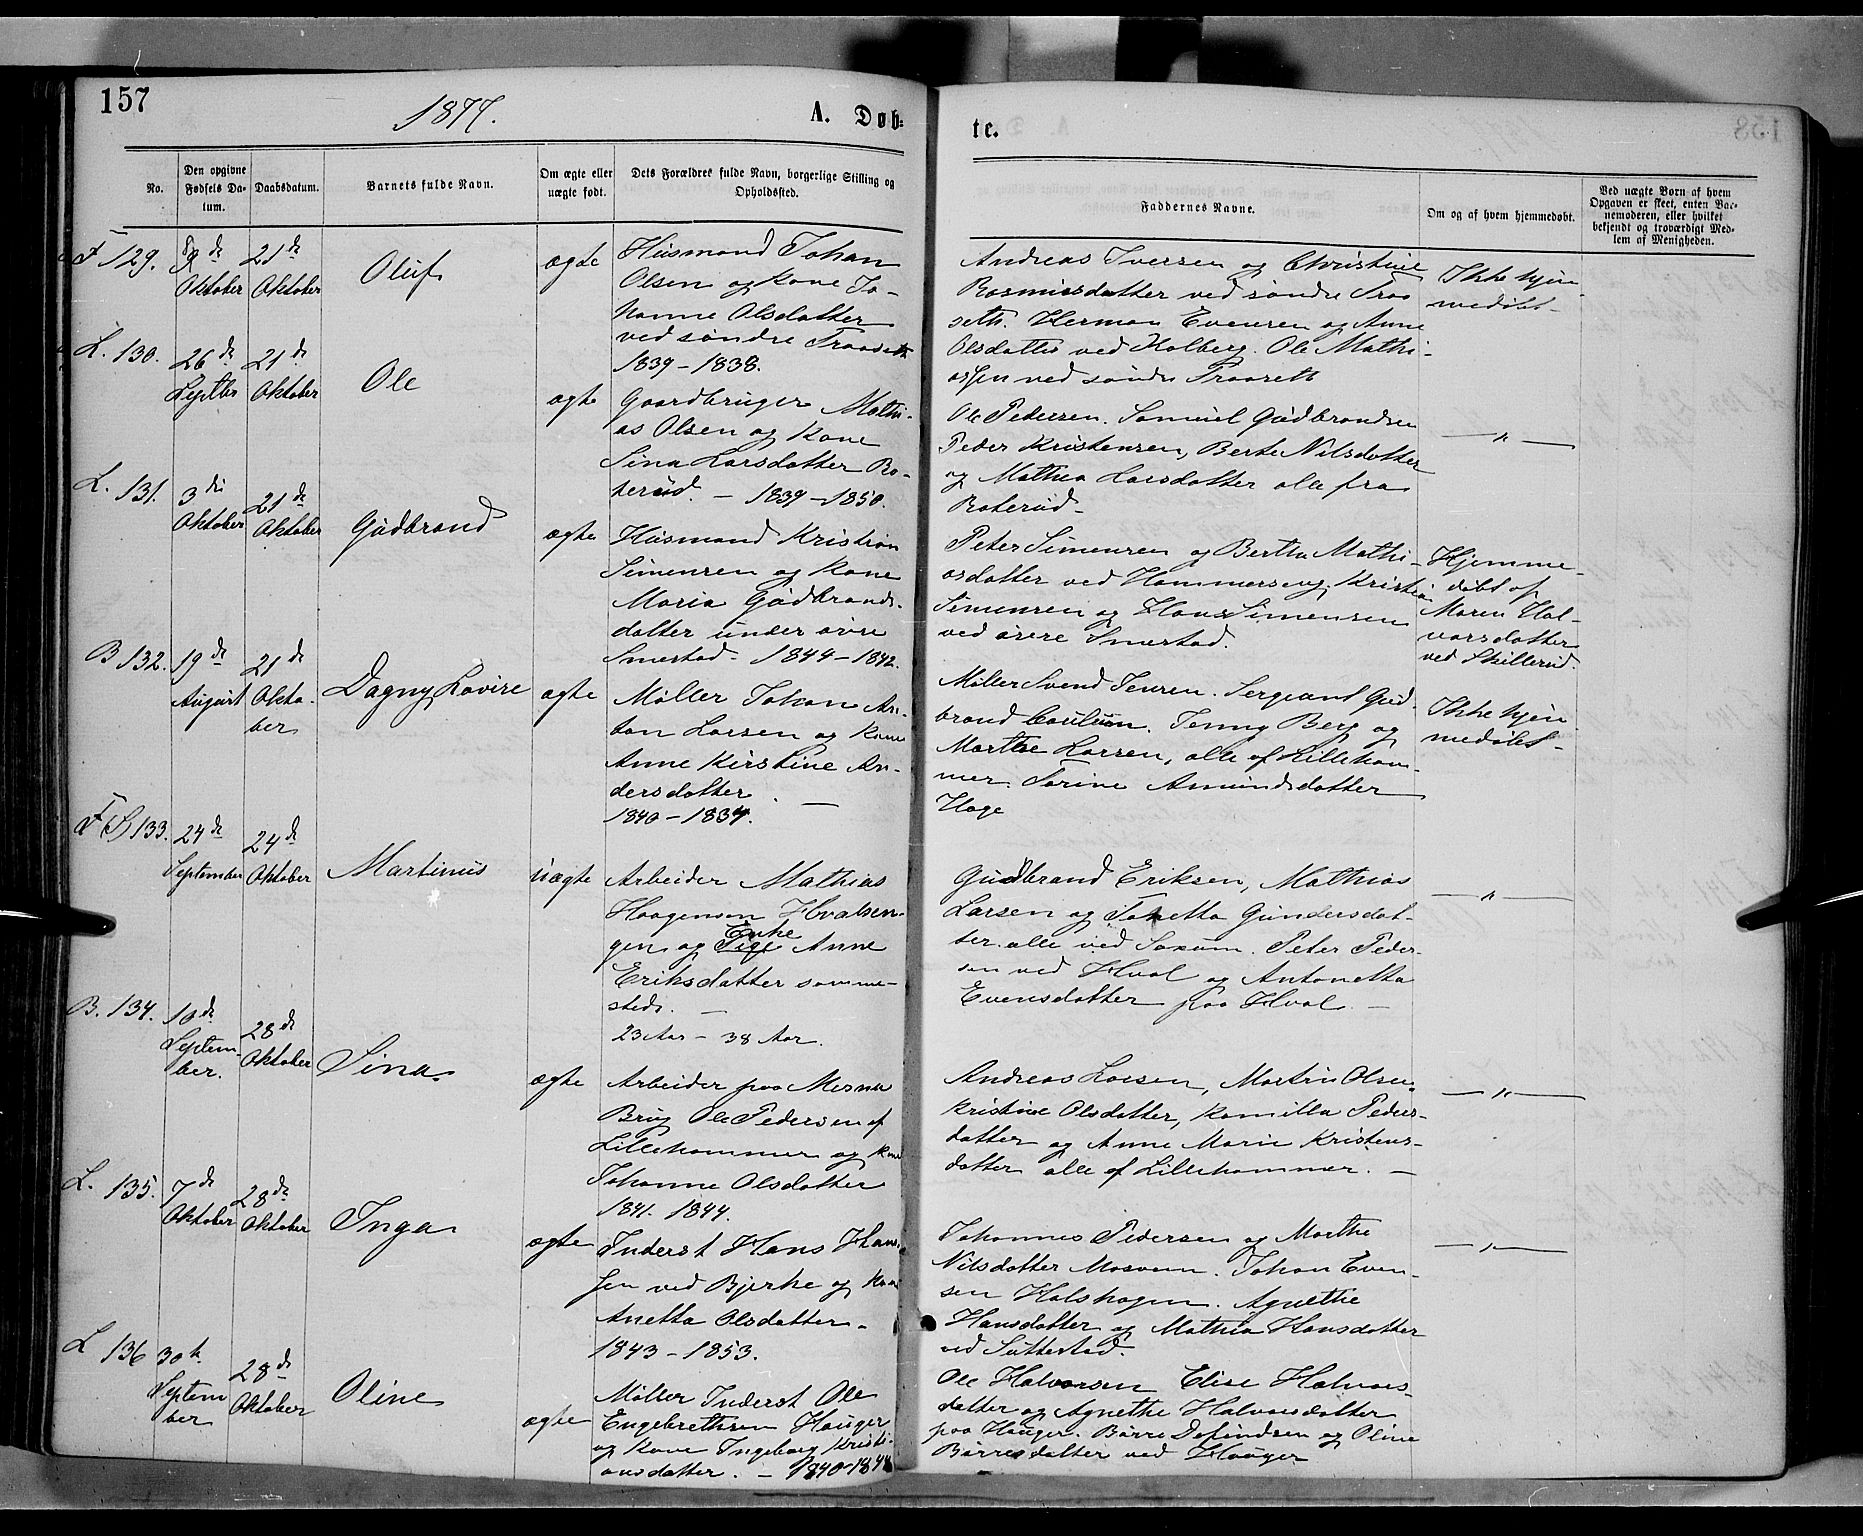 157
1877.
A. Døb-
te.
No.
Den opgivne Fødsels Da-tum.
Daabsdatum.
Barnets fulde Navn.
Om ægte eller uægte født.
Dets Forældres fulde Navn, borgerlige Stilling og Opholdssted.
Faddernes Navne.
Om og af hvem hjemmedøbt.
Ved uægte Børn af hvem Opgaven er skeet, enten Bar-nemoderen, eller hvilket bekjendt og troværdigt Med-lem af Menigheden.
F 129.
Oktober
21de
Oktober
Oluf
ægte
Husmand Johan
Olsen og Kone Jo-
hanne Olsdatter
ved søndre Traaseth
1839 - 1838.
Andreas Iversen og Christine
Rasmusdatter ved søndre Traa
seth. Herman Evensen og Anne
Olsdatter ved Kolberg. Ole Mathi-
assen ved søndre Traaseth
Ikke hjem
medøbt -
L. 130.
26de
Septbr
21de
Oktober
Ole
ægte
Gaardbruger Mathi-
as Olsen og Kone
Sina Larsdatter Ro-
terud. - 1839 - 1850.
Ole Pedersen. Samuel Gudbrandsen
Peder Kristensen, Berte Nilsdatter
og Mathea Larsdatter alle fra
Roterud -
— " —
L. 131.
3die
Oktober
21de
Oktober
Gudbrand
ægte
Husmand Kristian
Simensen og Kone
Maria Gudbrands-
datter under øvre
Smestad - 1844 - 1842.
Peter Simensen og Bertha Mathi-
asdatter ved Hammerseng, Kristia
Simensen og Hans Simensen
ved øvre Smestad.
Hjemme-
døbt af
Maren Hal-
vorsdatter
ved Skillerud.
B 132.
19de
August
21de
Okto-
ber
Dagny Lovise
ægte
Møller Johan An-
ton Larsen og Kone
Anne Kirstine An-
dersdatter. —
1840 - 1834.
Møller Svend Jensen. Sergeant Gud-
brand Paulsen. Jenny Berg og
Marthe Larsen, alle af Lilleham-
mer. Serine Amundsdatter
Hage
Ikke hjem
medøbt -
F S 133.
24de
September
24de
Oktober
Martinus
uægte
Arbeider Mathias
Haagensen Hvalsen-
gen og Pige Anne
Enke
Eriksdatter samme-
steds. —
23 Aar - 38 Aar.
Gudbrand Eriksen, Mathias
Larsen og Tonetta Gundersdat-
ter alle ved Saxum. Peter Peder-
sen ved Hval og Antonetta
Evensdatter paa Hval. —
— " —
B. 134.
10de
Septem-
ber.
28de
Oktober
Sina
ægte
Arbeider paa Mesna
Brug Ole Pedersen af
Lillehammer og Kone
Johanne Olsdatter
1841. 1844.
Andreas Larsen, Martin Olsen
Kristine Olsdatter, Kamilla Peders-
datter og Anne Marie Kristens-
datter alle af Lillehammer. —
— " —
L. 135.
7de
Oktober
28de
Oktober
Inga
ægte
Inderst Hans Han-
sen ved Bjerke og Kone
Anetta Olsdatter -
1843 - 1853.
Johannes Pedersen og Marthe
Nilsdatter Mosveen. Johan Even-
sen Halshagen. Agnethe
Hansdatter og Mathea Hansdatter
ved Suttestad.
— " —
L 136
30te
Septem
ber
28de
Oktober
Oline
ægte
Møller Inderst Ole
Engebrethsen Hauger
og Kone Ingeborg Kristi-
ansdatter. - 1840-1848
Ole Halvorsen Elise Halvors-
datter og Agnethe Halvorsdatter
paa Hauger. Børre Defindsen og Oline
Børresdatter ved Hauger